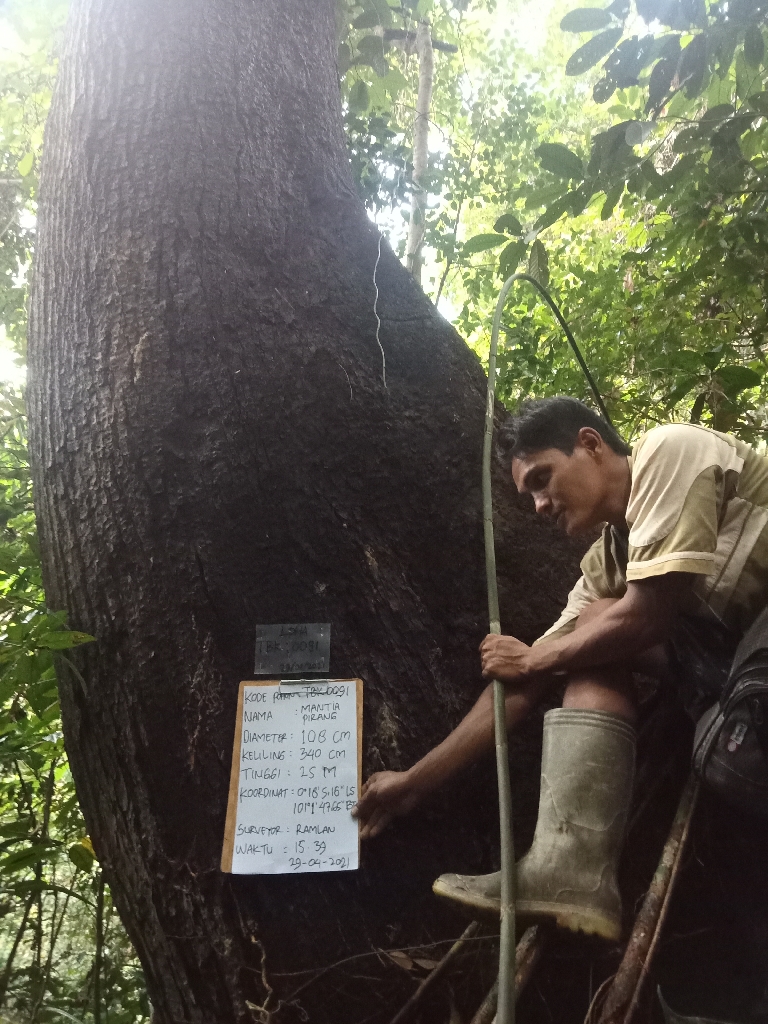 TBK:0091
KODE POHON TBK:0091
NAMA : MANTIA
PIRANG
DIAMETER : 108 CM
KELILING : 340 CM
TINGGI : 25 M
KOORDINAT : 0°18'5,16" LS
101°1'47,65" BT
SURVEYOR : RAMLAN
WAKTU : 15.39
29-04-2021